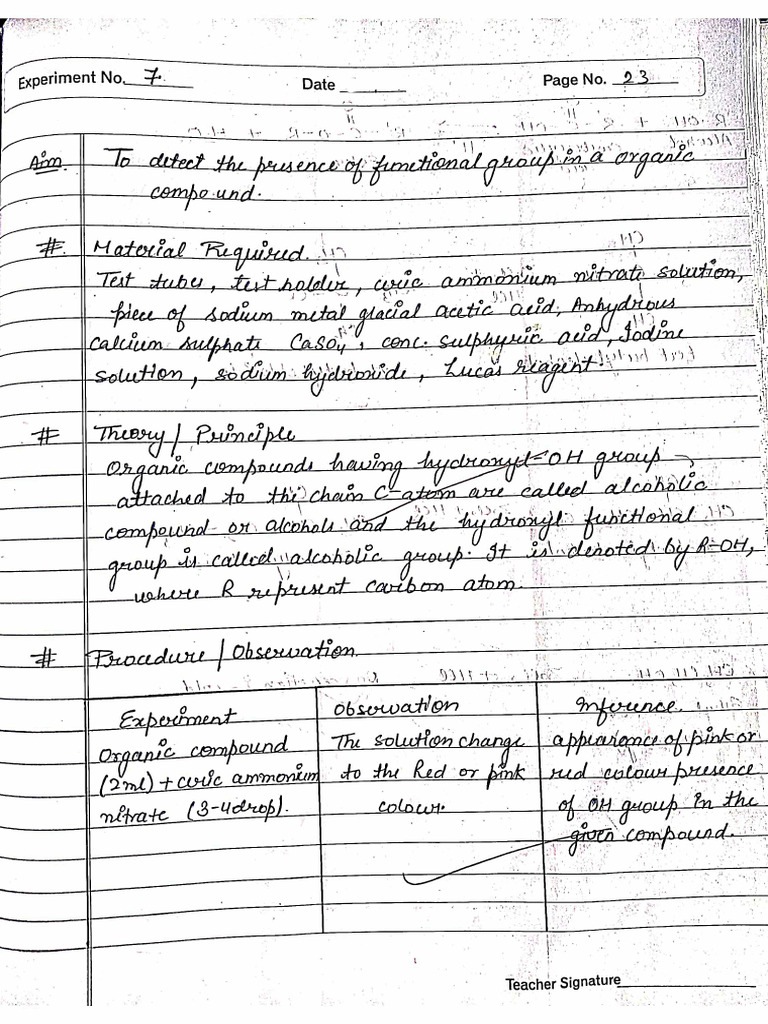 Experiment No. 7. Date Page No. 23
Aim. To detect the presence of functional group in a organic
compound.
#. Material Required.
Test tubes, test holder, ceric ammonium nitrate solution,
piece of sodium metal glacial acetic acid, Anhydrous
calcium sulphate CaSO4, conc. sulphyric acid, Iodine
solution, sodium hydroxide, Lucas reagent.
# Theory / Principle
Organic compounds having hydroxyl-OH group
attached to the chain C-atom are called alcoholic
compound or alcohols and the hydroxyl functional
group is called alcoholic group. It is denoted by R-OH,
where R represent carbon atom.
# Procedure / Observation
Experiment
Organic compound
(2ml) + ceric ammonium
nitrate (3-4drop).
Observation
The solution change
to the Red or pink
colour.
Inference.
appearance of pink or
red colour presence
of OH group in the
given compound.
Teacher Signature